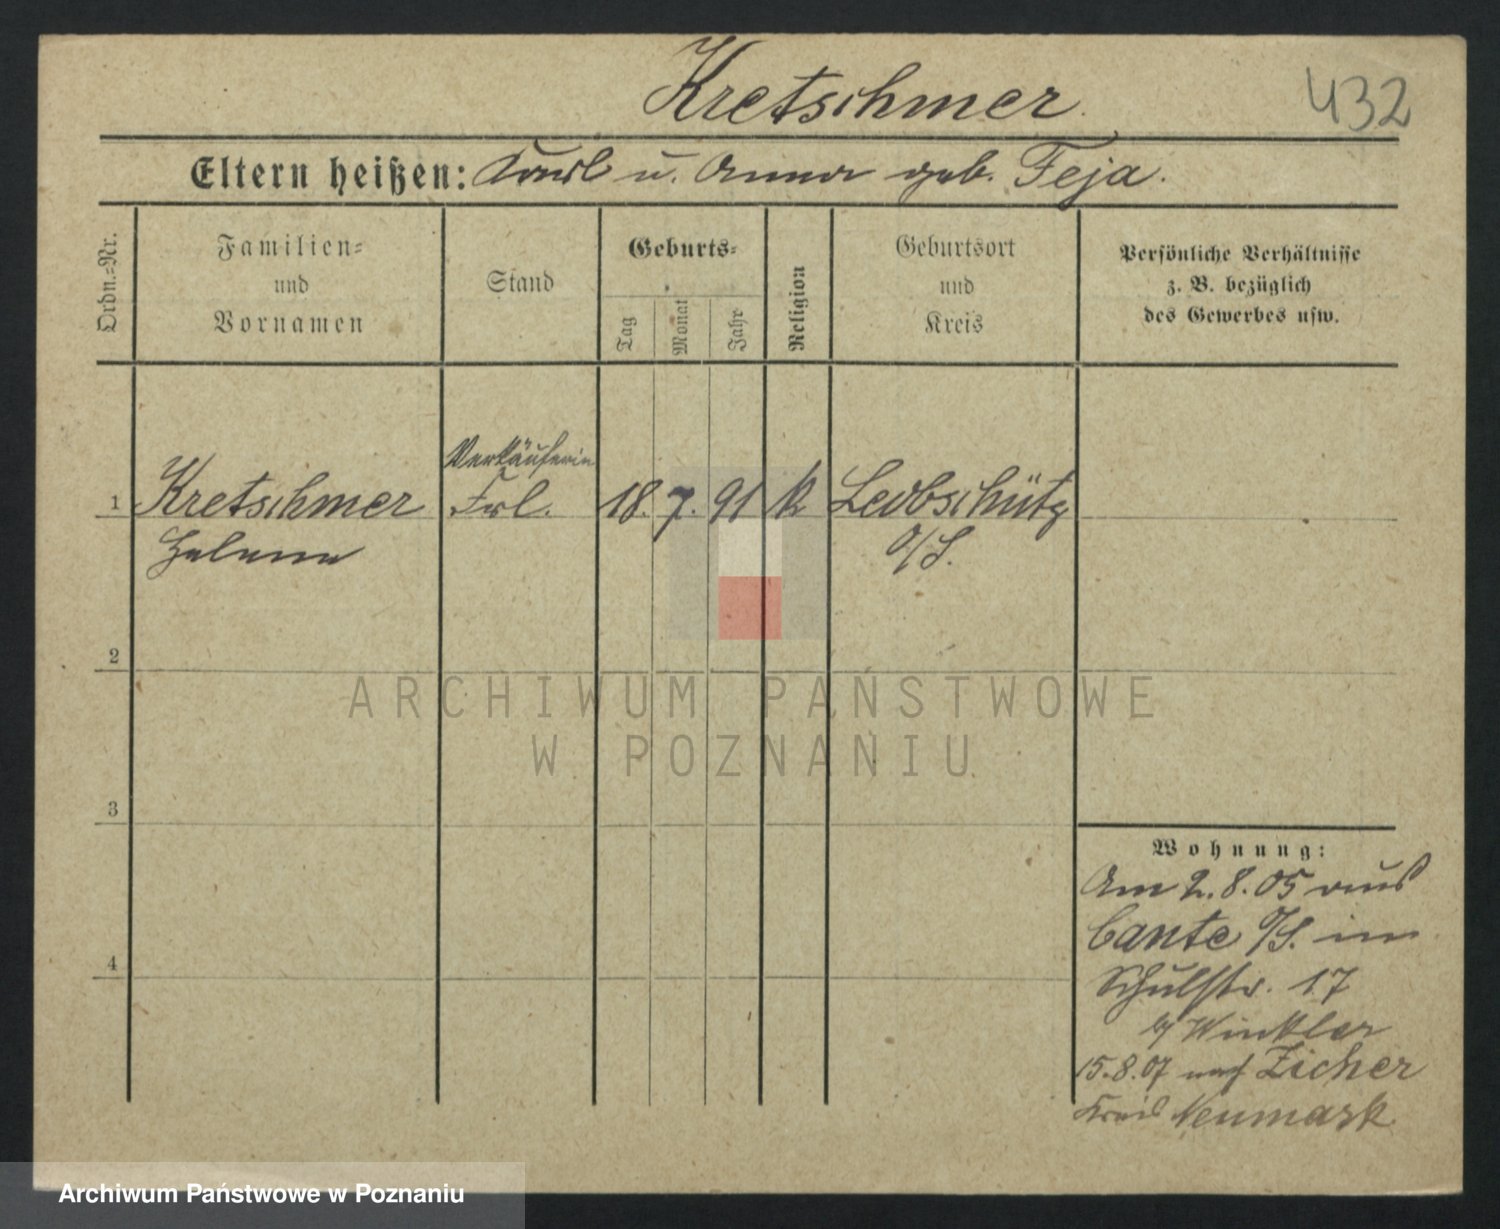 Kretschmer
432
Eltern heißen: Karl u. Anna geb. Feja.
Ordn.=Nr.
Familien=
und
Vornamen
Stand
Geburts=
Tag
Monat
Jahr
Religion
Geburtsort
und
Kreis
Persönliche Verhältnisse
z. B. bezüglich
des Gewerbes usw.
Verkäuferin
1 Kretschmer Frl. 18. 7. 91 k Leobschütz
Helene O/S.
2
ARCHIWUM PAŃSTWOWE
W POZNANIU
3
Wohnung:
Am 2.8.05 aus
Cante O/S. in
4
Schulstr. 17
b/ Winkler
15.8.07 nach Zicher
Kreis Neumark
Archiwum Państwowe w Poznaniu